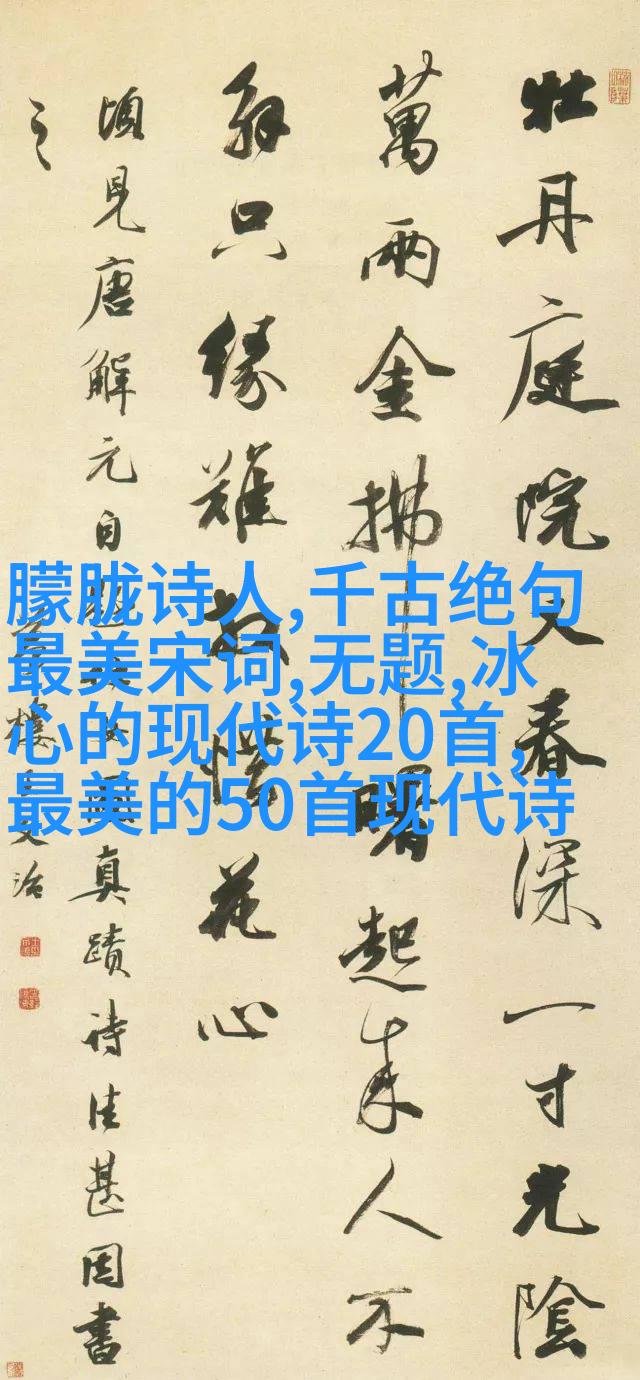 牡丹庭院又春深一寸光陰
萬兩金拂曙起來人不
解只緣難放惜花心
頃見唐解元自女圖真蹟詩佳甚因書
之
樓王文治
朦胧诗人,千古绝句
最美宋词,无题,冰
心的现代诗20首,
最美的50首现代诗